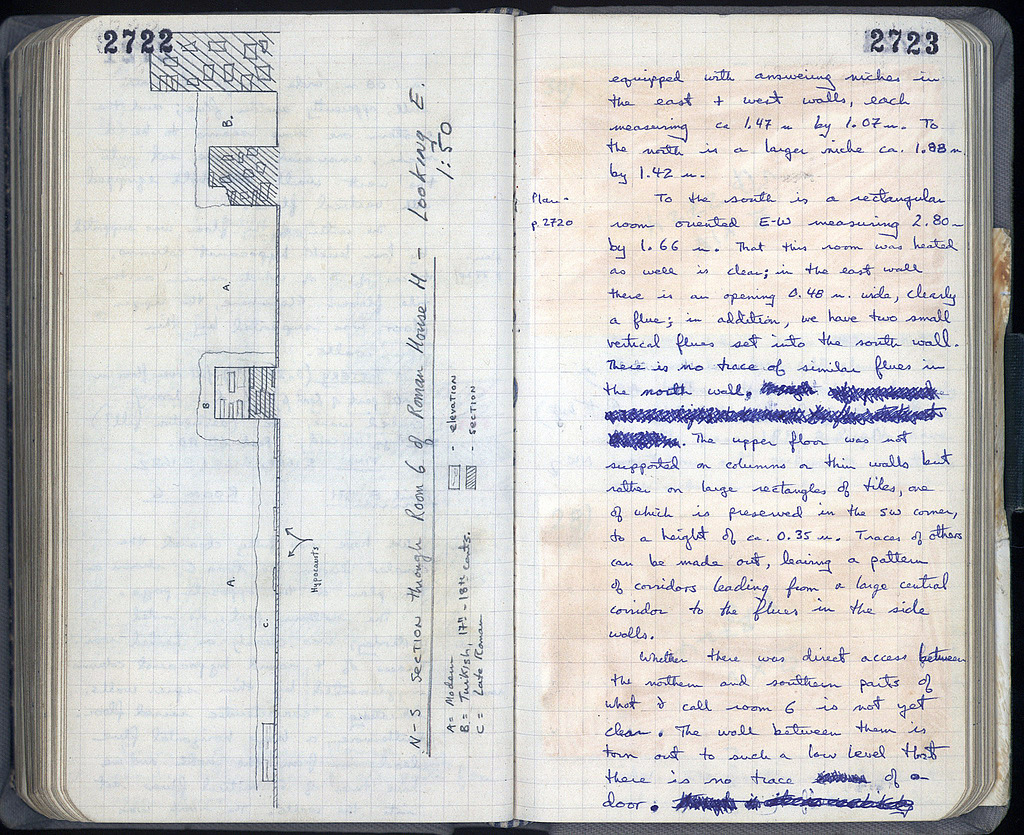 2722
B.
A.
B
A.
C.
Hypocausts
N-S Section through Room 6 of Roman House H - Looking E.
1:50
- elevation
- section
A = Modern
B = Turkish, 17th - 18th cents.
C = Late Roman
2723
equipped with answering niches in
the east + west walls, each
measuring ca 1.47 m by 1.07 m. To
the north is a larger niche ca. 1.88 m.
by 1.42 m.
Plan -
p. 2720
To the south is a rectangular
room oriented E-W measuring 2.80 -
by 1.66 m. That this room was heated
as well is clear; in the east wall
there is an opening 0.48 m. wide, clearly
a flue; in addition, we have two small
vertical flues set into the south wall.
There is no trace of similar flues in
the north wall.
The upper floor was not
supported on columns or thin walls but
rather on large rectangles of tiles, one
of which is preserved in the SW corner,
to a height of ca. 0.35 m. Traces of others
can be made out, leaving a pattern
of corridors leading from a large central
corridor to the flues in the side
walls.
Whether there was direct access between
the northern and southern parts of
what I call room 6 is not yet
clear. The wall between them is
torn out to such a low level that
there is no trace of a
door.